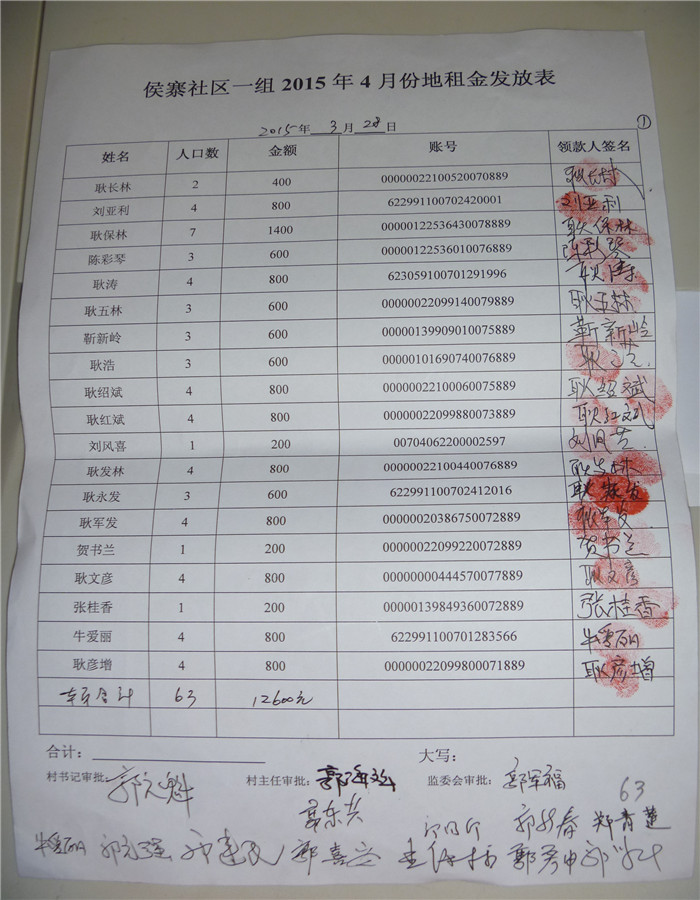 侯寨社区一组 2015 年 4 月份地租金发放表
①
2015年 3 月 28 日
姓名 人口数 金额 账号 领款人签名
耿长林 2 400 00000022100520070889 耿长林
刘亚利 4 800 622991100702420001 刘亚利
耿保林 7 1400 00000122536430078889 耿保林
陈彩琴 3 600 00000122536010076889 陈彩琴
耿涛 4 800 623059100701291996 耿涛
耿五林 3 600 00000022099140079889 耿五林
靳新岭 3 600 00000139909010075889 靳新岭
耿浩 3 600 00000101690740076889 耿
耿绍斌 4 800 00000022100060075889 耿绍斌
耿红斌 4 800 00000022099880073889 耿红斌
刘风喜 1 200 00704062200002597 刘风
耿发林 4 800 00000022100440076889 耿发林
耿永发 3 600 622991100702412016 耿永发
耿军发 4 800 00000020386750072889 耿军发
贺书兰 1 200 00000022099220072889 贺书兰
耿文彦 4 800 00000000444570077889 耿文彦
张桂香 1 200 00000139849360072889 张桂香
牛爱丽 4 800 622991100701283566 牛爱丽
耿彦增 4 800 00000022099800071889 耿彦增
合计 63 12600元
合计： 大写：
村书记审批： 郭元魁 村主任审批： 郭 监委会审批： 郭军福
63
郭东兴 郑青楚
牛爱丽 郭嘉兴